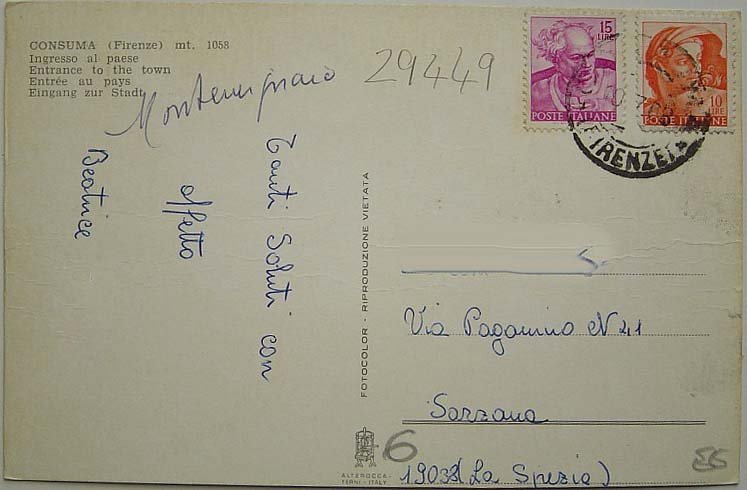 CONSUMA (Firenze) mt. 1058
Ingresso al paese
Entrance to the town
Entrée au pays
Eingang zur Stadt
Montemignaio
29449
Tanti Saluti con
affetto
Beatrice
FOTOCOLOR - RIPRODUZIONE VIETATA
ALTEROCCA-
TERNI - ITALY
15
LIRE
POSTE ITALIANE
10
LIRE
POSTE ITALIANE
FIRENZE
Via Paganino N 41
Sarzana
19038 (La Spezia)
6